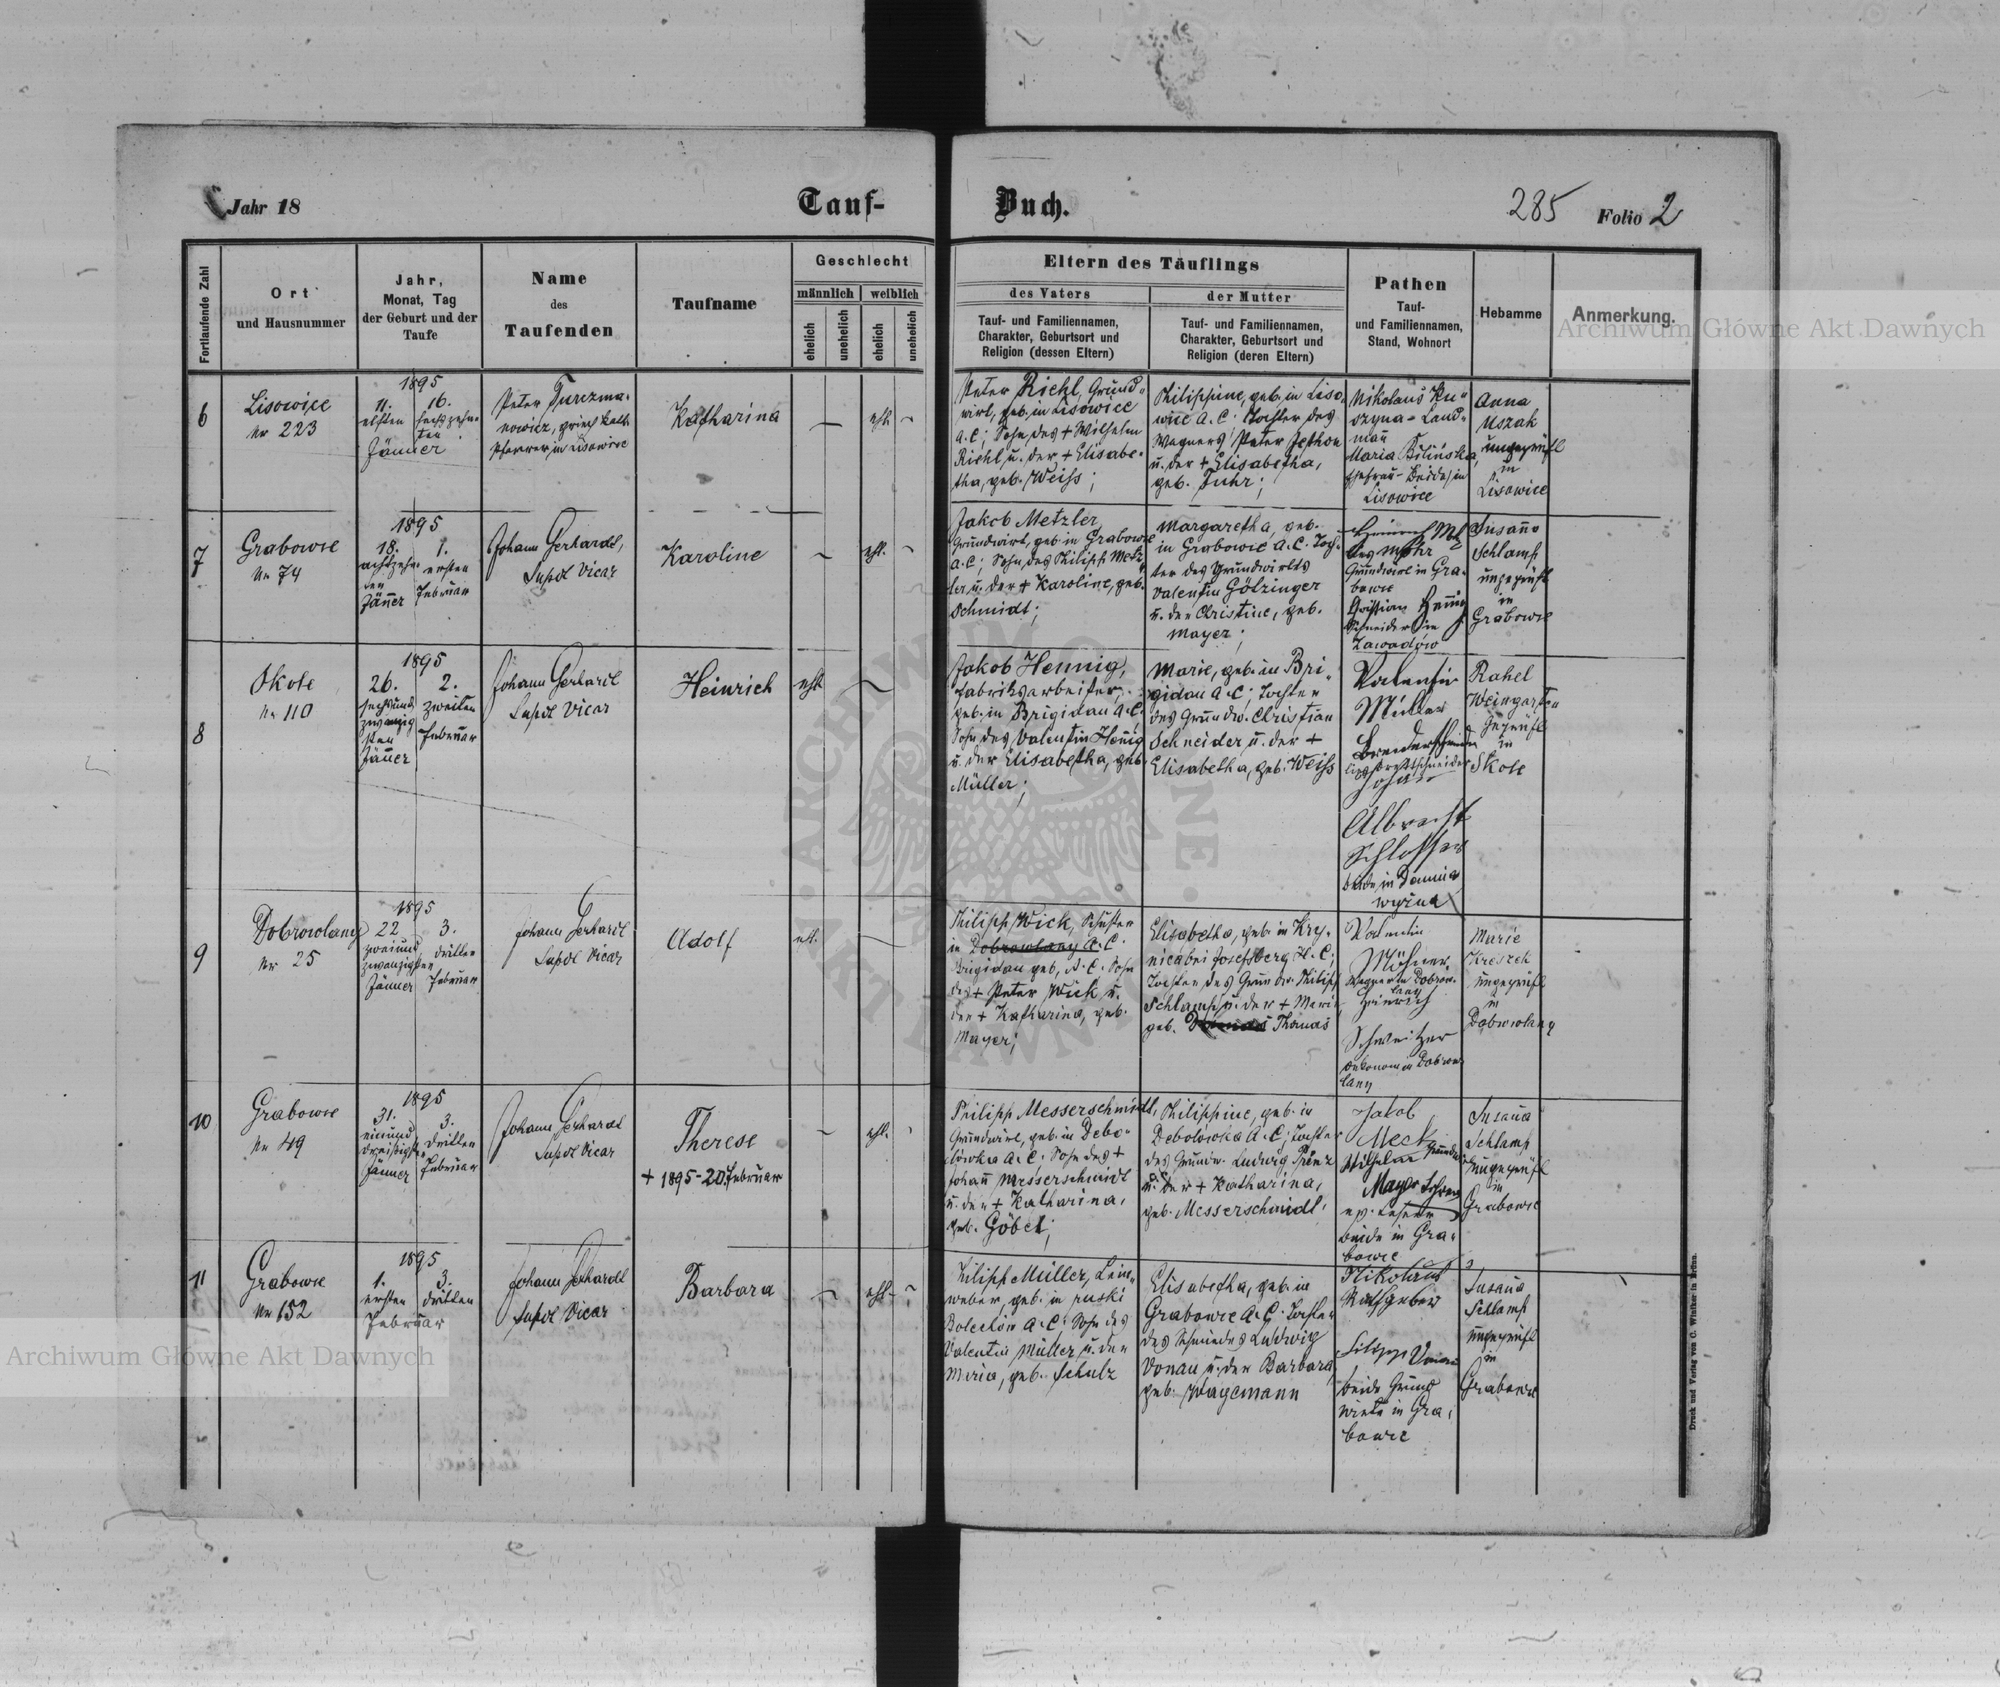 Jahr 18
Tauf-
Buch.
285
Folio 2
Fortlaufende Zahl
Ort
und Hausnummer
Jahr,
Monat, Tag
der Geburt und der
Taufe
Name
des
Taufenden
Taufname
Geschlecht
männlich
weiblich
ehelich
unehelich
ehelich
unehelich
Eltern des Täuflings
des Vaters
Tauf- und Familiennamen,
Charakter, Geburtsort und
Religion (dessen Eltern)
der Mutter
Tauf- und Familiennamen,
Charakter, Geburtsort und
Religion (deren Eltern)
Pathen
Tauf-
und Familiennamen,
Stand, Wohnort
Hebamme
Anmerkung.
Archiwum Główne Akt Dawnych
6
Lisowice
Nr 223
1895
11. 16.
eilften sechszehn-
ten
Jänner
Peter Turczma-
nowicz, griech kath
Pfarrer in Lisowice
Katharina
ehl.
Peter Riehl, Grund-
wirt, geb. in Lisowice
A. C; Sohn des + Wilhelm
Riehl u. der + Elisabe-
tha, geb. Weiss;
Philippine, geb. in Liso
wice A. C; Tochter des
Wagners Peter Jethon
u. der + Elisabetha,
geb. Fuhr;
Nikolaus Ku-
szyna - Land-
man
Maria Bilińska,
Ehefrau - Beide in
Lisowice
Anna
Uszak
ungeprüft
in
Lisowice
7
Grabowce
Nr 74
1895
18. 1.
achtzehn- ersten
ten
Jänner Februar
Johann Gerhardt,
Supdt Vicar
Karoline
ehl.
Jakob Metzler,
Grundwirt, geb. in Grabowce
A. C; Sohn des Philipp Metz-
ler u. der + Karoline, geb.
Schmidt;
Margaretha, geb.
in Grabowce A. C. Toch-
ter des Grundwirts
Valentin Götzinger
u. der Christine, geb.
Mayer;
Grundwirt in Gra-
bowce
Christian Hennig
Schneider in
Zawadów
Susanna
Schlamp
ungeprüft
in
Grabowce
8
Skole
Nr 110
1895
26. 2.
sechsund zweiten
zwanzig
sten Februar
Jänner
Johann Gerhardt
Supdt Vicar
Heinrich
ehl.
Jakob Hennig,
Fabriksarbeiter,
geb. in Brigidau A. C;
Sohn des Valentin Hennig
u. der Elisabetha, geb.
Müller;
Marie, geb. in Bri-
gidau A. C; Tochter
des Grundw. Christian
Schneider u. der +
Elisabetha, geb. Weiss
Valentin
Müller
Johann
Albrecht
Schlosser
beide in Demnia
wyzna
Rahel
Weingarten
geprüft
in
Skole
9
Dobrowlany
Nr 25
1895
22 3.
zweiund dritten
zwanzigsten
Jänner Februar
Johann Gerhardt
Supdt Vicar
Adolf
ehl.
Philipp Wick, Schuster
in Dobrowlany A. C.
Brigidau geb, A. C. Sohn
des + Peter Wick u.
der + Katharina, geb.
Mayer;
Elisabetha, geb in Kry-
nica bei Josefsberg H. C;
Tochter des Grundw. Philipp
Schlamp u. der + Marie
geb. Thomas
Valentin
Wagner in Dobrow-
lany
Heinrich
Schweitzer
Oekonom in Dobrow
lany
Marie
Kreszek
ungeprüft
in
Dobrowlany
10
Grabowce
Nr 49
1895
31. 3.
einund dritten
dreissigsten
Jänner Februar
Johann Gerhardt
Supdt Vicar
Therese
+ 1895 - 20. Februar
ehl.
Philipp Messerschmidt,
Grundwirt, geb. in Debo-
lówka A. C. Sohn des +
Johann Messerschmidt
u. der + Katharina,
geb. Göbel;
Philippine, geb. in
Debolówka A. C; Tochter
des Grundw. Ludwig Prinz
u. der + Katharina,
geb. Messerschmidt,
Jakob
Meck
Wilhelm
Mayer Lehrer
beide in Gra-
bowce
Susanna
Schlamp
ungeprüft
in
Grabowce
11
Grabowce
Nr 152
1895
1. 3.
ersten dritten
Februar
Johann Gerhardt
Supdt Vicar
Barbara
ehl.
Philipp Müller, Lein-
weber, geb. in ruski
Bolechów A. C; Sohn des
Valentin Müller u. der
Maria, geb. Schulz
Elisabetha, geb. in
Grabowce A. C. Tochter
des Schmides Ludwig
Vonau u. der Barbara,
geb. Wagemann
Nikolaus
Rathgeber
Filipp Vonau
beide Grund
wirte in Gra-
bowce
Susanna
Schlamp
ungeprüft
in
Grabowce
Druck und Verlag von C. Winiker in Brünn.
Archiwum Główne Akt Dawnych
ARCHIWUM GŁÓWNE AKT DAWNYCH